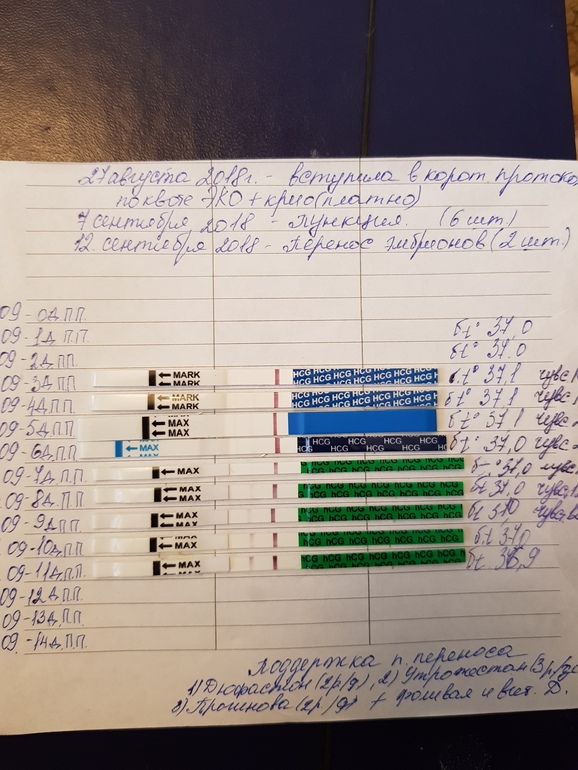 27 августа 2018г. - вступила в корот. протокол
по квоте ЭКО + крио (платно)
7 сентября 2018 - Пункция (6 шт.)
12. сентября 2018 - Перенос эмбрионов (2 шт.)
09 - 0Д.П.П.
09 - 1Д П.П. бt° 37,0
09 - 2Д ПП бt° 37.0
09 - 3Д ПП ← MARK MARK HCG HCG HCG HCG HCG HCG HCG бt° 37,1
09 - 4Д ПП ← MARK ← MARK HCG HCG HCG HCG HCG HCG HCG бt° 37,1
09 - 5Д ПП ← MAX ← MAX бt° 37,1
09 - 6Д ПП ← MAX HCG HCG HCG HCG HCG HCG бt° 37,0
09 - 7Д П.П. ← MAX hCG hCG hCG hCG hCG hCG бt° 37,0
09 - 8Д. П.П. ← MAX hCG hCG hCG hCG hCG hCG бt 37,0
09 - 9Д П.П. ← MAX hCG hCG hCG hCG hCG hCG бt 37,0
09 - 10Д П.П. ← MAX hCG hCG hCG hCG hCG hCG бt 37,0
09 - 11Д П.П. ← MAX hCG hCG hCG hCG hCG hCG бt 36,9
09 - 12Д П.П.
09 - 13Д П.П.
09. - 14Д П.П.
Поддержка п. переноса
1) Дюфастон (2р/д), 2) Утрожестан (3р/д)
3) Прогинова (2р/д) + фолиевая и вит. Д.